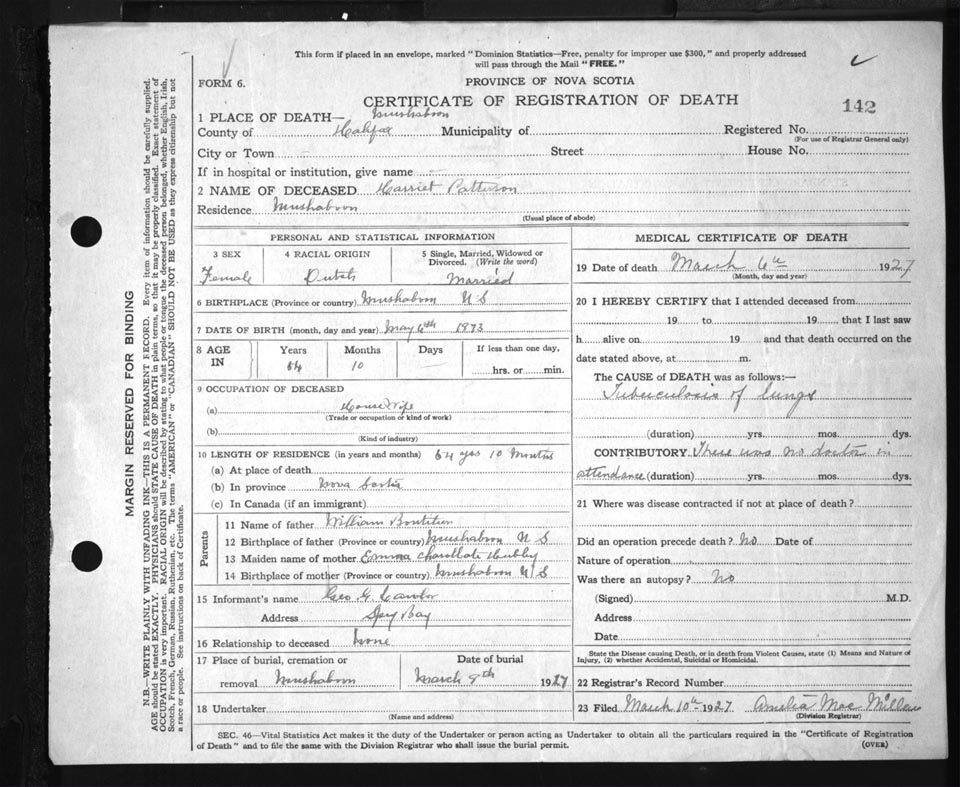 This form if placed in an envelope, marked "Dominion Statistics—Free, penalty for improper use $300," and properly addressed
will pass through the Mail "FREE."
FORM 6.
PROVINCE OF NOVA SCOTIA
CERTIFICATE OF REGISTRATION OF DEATH
142
1 PLACE OF DEATH— Mushaboon
County of Halifax Municipality of Registered No.
(For use of Registrar General only)
City or Town Street House No.
If in hospital or institution, give name
2 NAME OF DECEASED Harriet Patterson
Residence Mushaboon
(Usual place of abode)
PERSONAL AND STATISTICAL INFORMATION
3 SEX 4 RACIAL ORIGIN 5 Single, Married, Widowed or
Divorced. (Write the word)
Female Dutch Married
6 BIRTHPLACE (Province or country) Mushaboon N S
7 DATE OF BIRTH (month, day and year) May 6th 1873
8 AGE IN Years Months Days If less than one day,
54 10 hrs. or min.
9 OCCUPATION OF DECEASED
(a) House Wife
(Trade or occupation or kind of work)
(b)
(Kind of industry)
10 LENGTH OF RESIDENCE (in years and months) 54 yrs 10 Months
(a) At place of death
(b) In province Nova Scotia
(c) In Canada (if an immigrant)
Parents
11 Name of father William Boutilier
12 Birthplace of father (Province or country) Mushaboon N S
13 Maiden name of mother Emma
14 Birthplace of mother (Province or country) Mushaboon N S
15 Informant's name Geo G
Address Spry Bay
16 Relationship to deceased None
17 Place of burial, cremation or Date of burial
removal Mushaboon March 8th 1927
18 Undertaker
(Name and address)
MEDICAL CERTIFICATE OF DEATH
19 Date of death March 6th 1927
(Month, day and year)
20 I HEREBY CERTIFY that I attended deceased from
19 to 19 that I last saw
h alive on 19 and that death occurred on the
date stated above, at m.
The CAUSE of DEATH was as follows:—
Tuberculosis of lungs
(duration) yrs. mos. dys.
CONTRIBUTORY There was no doctor in
attendance (duration) yrs. mos. dys.
21 Where was disease contracted if not at place of death?
Did an operation precede death? No Date of
Nature of operation
Was there an autopsy? No
(Signed) M.D.
Address
Date
State the Disease causing Death, or in death from Violent Causes, state (1) Means and Nature of
Injury, (2) whether Accidental, Suicidal or Homicidal.
22 Registrar's Record Number
23 Filed March 10th 1927 Amelia Mac Millan
(Division Registrar)
SEC. 46—Vital Statistics Act makes it the duty of the Undertaker or person acting as Undertaker to obtain all the particulars required in the "Certificate of Registration
of Death" and to file the same with the Division Registrar who shall issue the burial permit.
(OVER)
MARGIN RESERVED FOR BINDING
N.B.—WRITE PLAINLY, WITH UNFADING INK—THIS IS A PERMANENT RECORD. Every item of information should be carefully supplied.
AGE should be stated EXACTLY. PHYSICIANS should STATE CAUSE OF DEATH in plain terms, so that it may be properly classified. Exact statement of
OCCUPATION is very important. RACIAL ORIGIN will be described by stating to what people or tongue the deceased person belonged, whether English, Irish,
Scotch, French, German, Russian, Ruthenian, etc. The terms "AMERICAN" or "CANADIAN" SHOULD NOT BE USED as they express citizenship but not
a race or people. See instructions on back of Certificate.